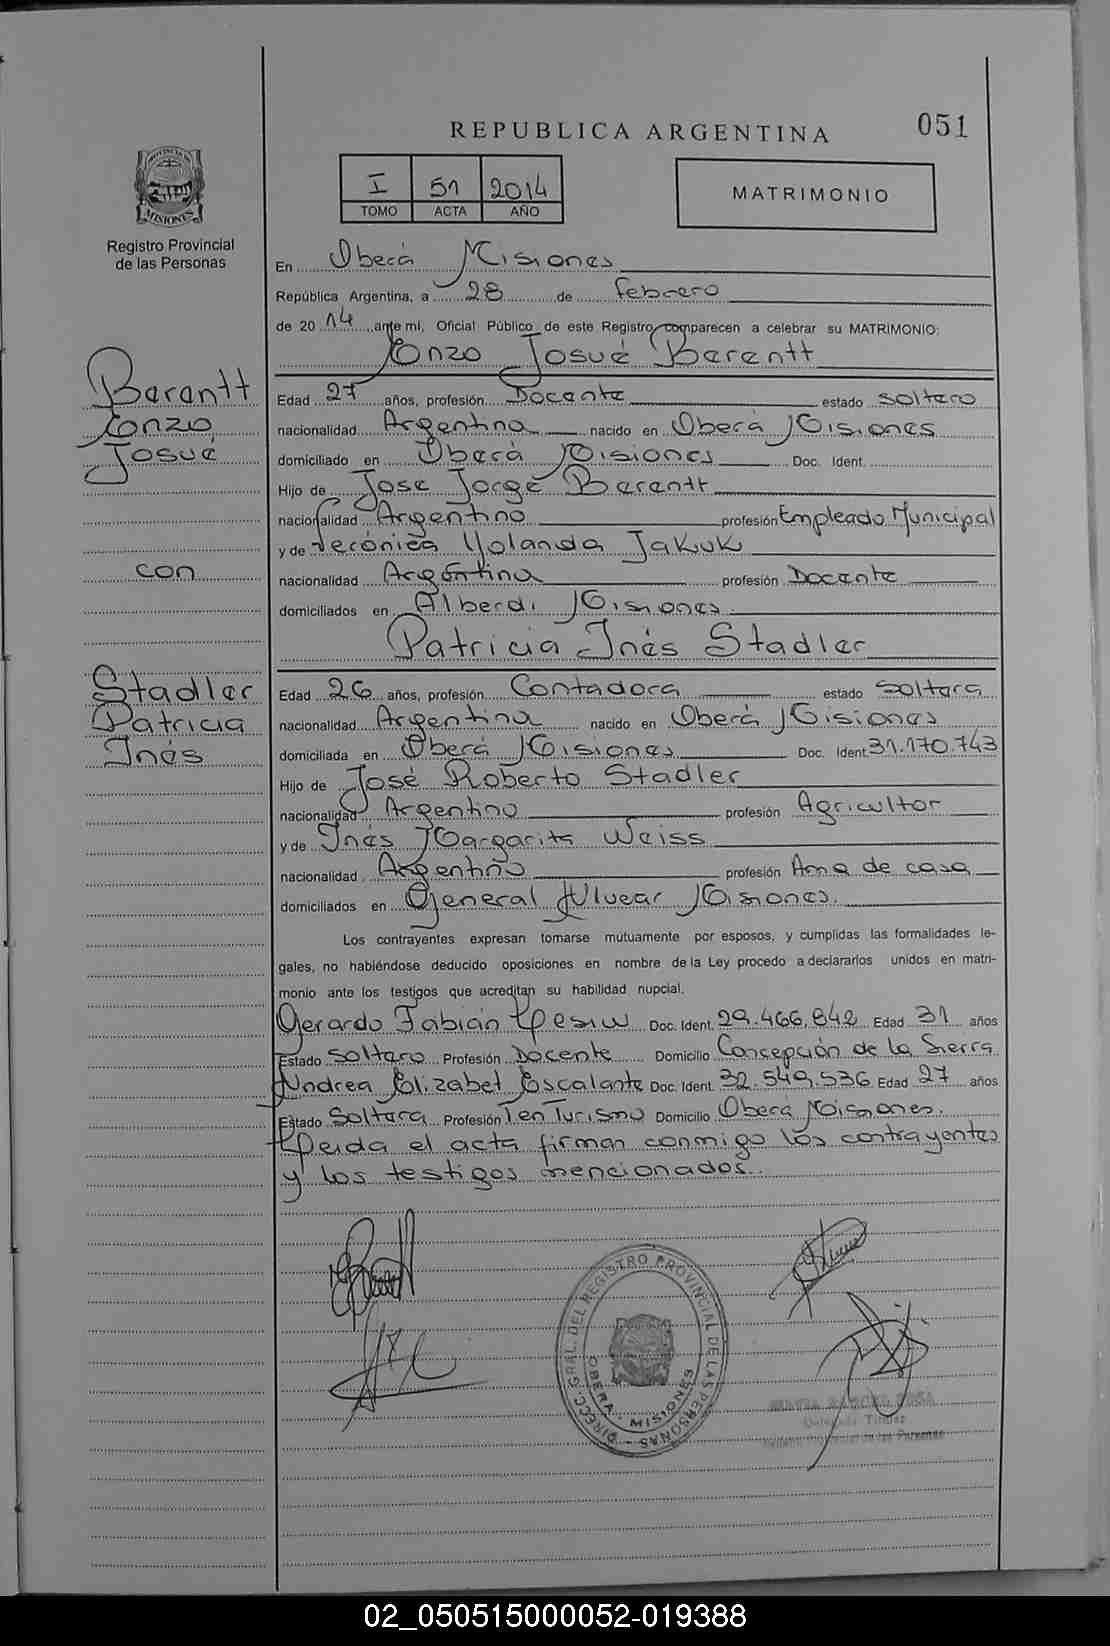 REPUBLICA ARGENTINA
051
I 51 2014
TOMO ACTA AÑO
MATRIMONIO
Registro Provincial
de las Personas
En Oberá Misiones
República Argentina, a 28 de febrero
de 2014, ante mi, Oficial Público de este Registro comparecen a celebrar su MATRIMONIO:
Enzo Josué Barantt
Barantt
Enzo
Josué
con
Stadler
Patricia
Inés
Edad 27 años, profesión Docente estado soltero
nacionalidad Argentina nacido en Oberá Misiones
domiciliado en Oberá Misiones Doc. Ident.
Hijo de Jose Jorge Barantt
nacionalidad Argentino profesión Empleado Municipal
y de Verónica Yolanda Jakuk
nacionalidad Argentina profesión Docente
domiciliados en Alberdi Misiones
Patricia Inés Stadler
Edad 26 años, profesión Contadora estado soltera
nacionalidad Argentina nacido en Oberá Misiones
domiciliada en Oberá Misiones Doc. Ident. 31.170.743
Hijo de José Roberto Stadler
nacionalidad Argentino profesión Agricultor
y de Inés Margarita Weiss
nacionalidad Argentino profesión Ama de casa
domiciliados en General Alvear Misiones.
Los contrayentes expresan tomarse mutuamente por esposos, y cumplidas las formalidades le-
gales, no habiéndose deducido oposiciones en nombre de la Ley procedo a declararlos unidos en matri-
monio ante los testigos que acreditan su habilidad nupcial.
Gerardo Fabián Doc. Ident. 29.466.842 Edad 31 años
Estado soltero Profesión Docente Domicilio Concepción de la Sierra
Andrea Elizabet Escalante Doc. Ident. 32.549.536 Edad 27 años
Estado Soltera Profesión T en Turismo Domicilio Oberá Misiones.
Leida el acta firman conmigo los contrayentes
y los testigos mencionados.
DIRECC. GRAL. DEL REGISTRO PROVINCIAL DE LAS PERSONAS
OBERA - MISIONES
Delegada Titular
Registro Provincial de las Personas
02_050515000052-019388